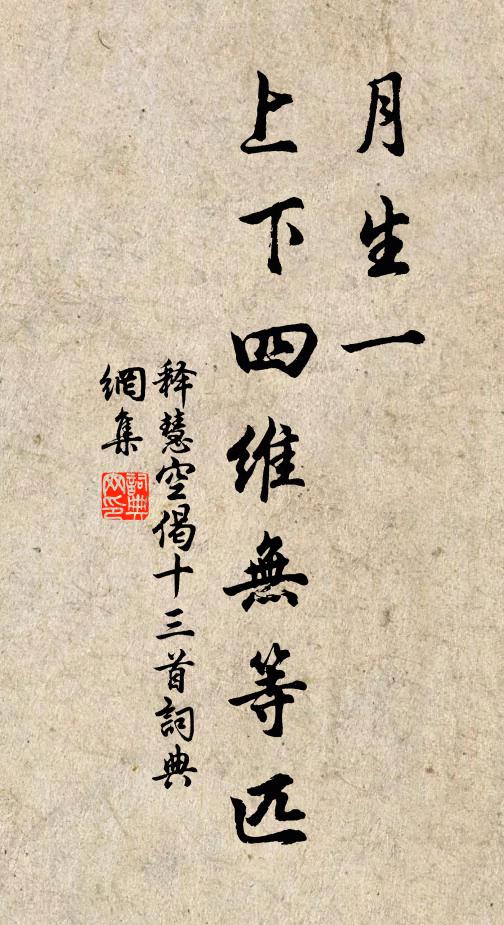 月生一
上下四維無等匹
释慧空偈十三首詞典
網集
詞典
网印